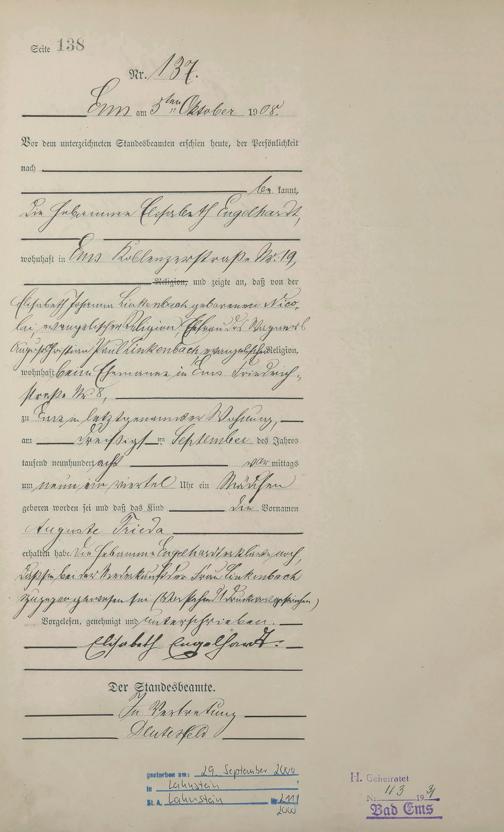 Seite 138
Nr. 137.
Ems am 5ten Oktober 1908.
Vor dem unterzeichneten Standesbeamten erschien heute, der Persönlichkeit
nach
be kannt,
die Hebamme Elisabeth Engelhardt,
wohnhaft in Ems Koblenzerstraße Nr. 19,
Religion, und zeigte an, daß von der
Elisabeth Johanna Linkenbach geborenen Nico-
lai, evangelischer Religion Ehefrau des Wagners
August Christian Paul Linkenbach evangelischer Religion,
wohnhaft beim Ehemanne in Ems Friedrich-
straße Nr. 8,
zu Ems in letztgenannter Wohnung,
am dreißigsten September des Jahres
tausend neunhundert acht vor mittags
um neun ein viertel Uhr ein Mädchen
geboren worden sei und daß das Kind die Vornamen
Auguste Frieda
erhalten habe. Die Hebamme Engelhardt erklärte noch,
daß sie bei der Niederkunft der Frau Linkenbach
zugegen gewesen sei (Vorstehend Druckworte gestrichen)
Vorgelesen, genehmigt und unterschrieben.
Elisabeth Engelhardt.
Der Standesbeamte.
In Vertretung
gestorben am: 29. September 2000
in Lahnstein
St. A. Lahnstein Nr. 211/
2000
H. Geheiratet
Nr. 113 1931
Bad Ems